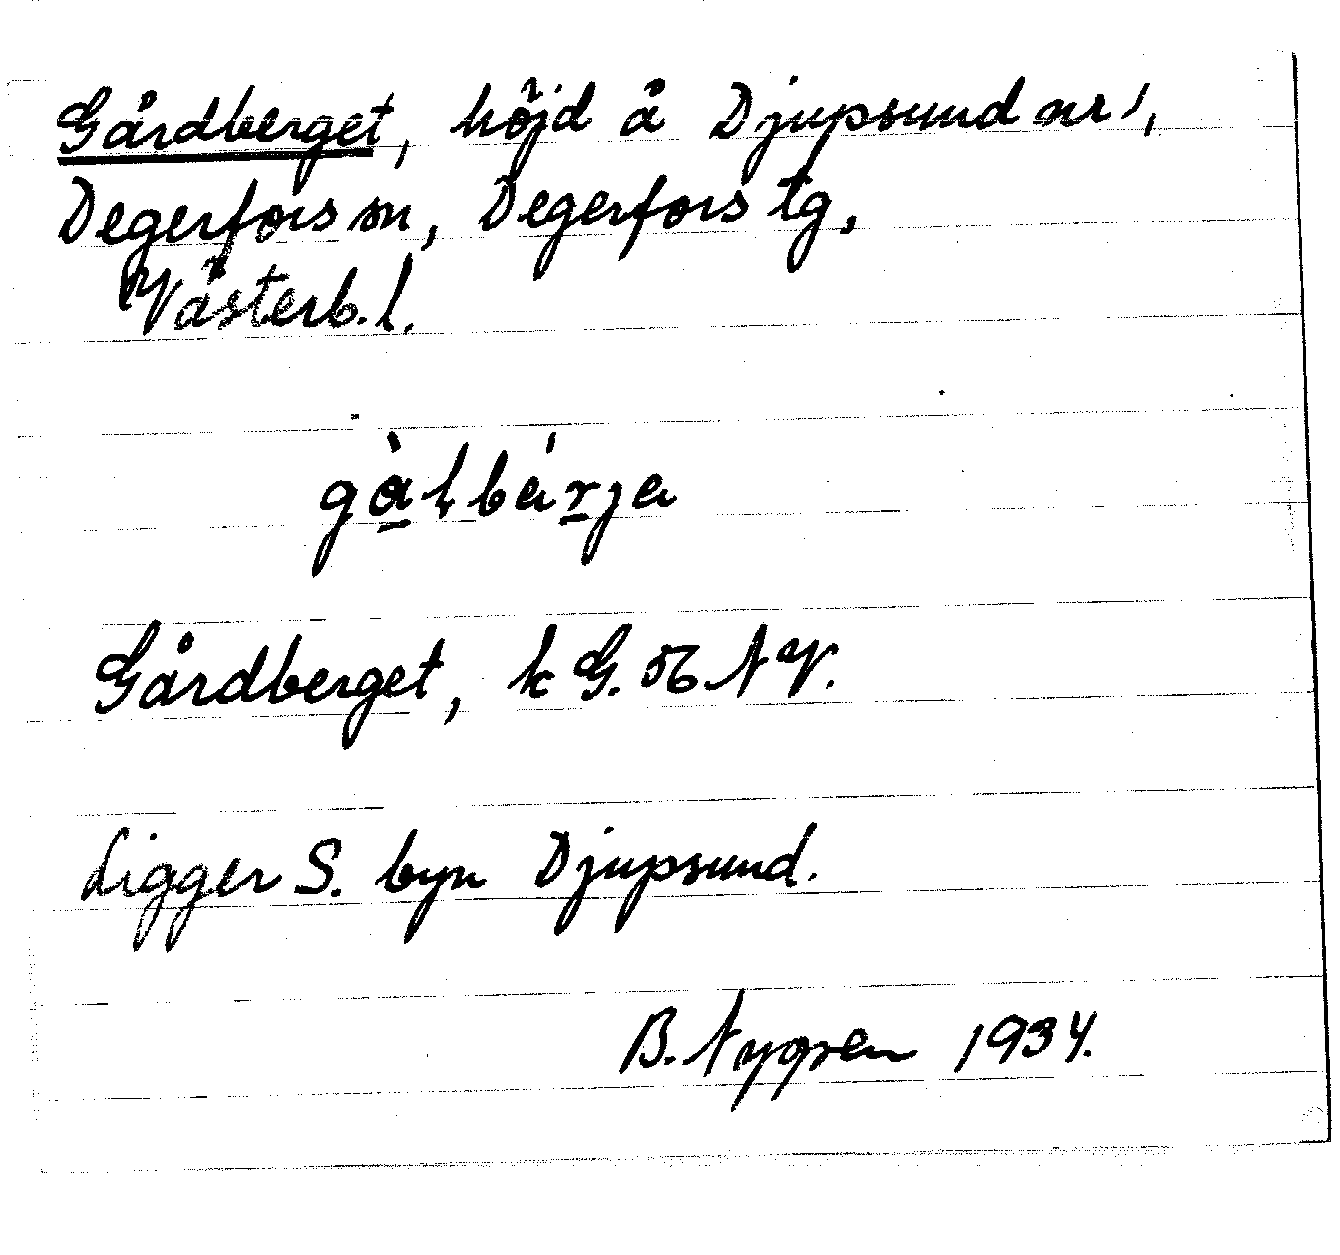 Gårdberget, höjd å Djupsund nr 1,
Degerfors sn, Degerfors tg,
Västerb. l.
Gårdberget, k G. 56 NV.
Ligger S. byn Djupsund.
B. Nygren 1934.